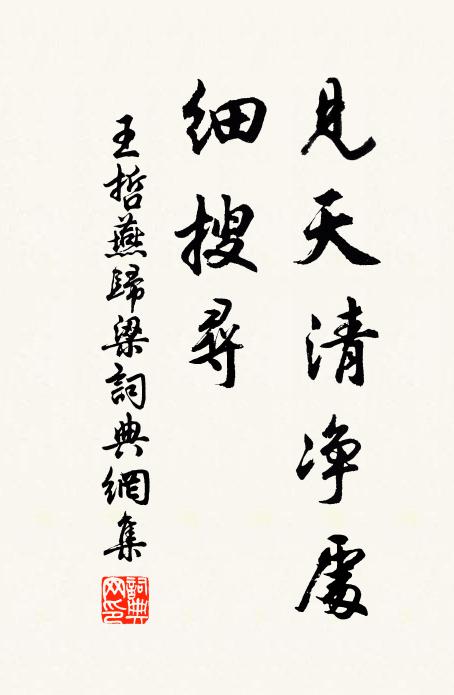 見天清净處
細搜尋
王哲燕歸梁詞典網集
詞典网印